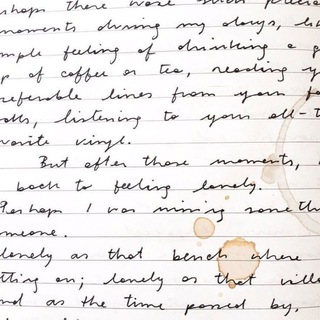 rhaps there were such precio
moments during my days, li
mple feeling of drinking a g
p of coffee or tea, reading y
referable lines from your fa
oths, listening to your all-t
vorite vinyl.
But after those moments, 
back to feeling lonely.
Perhaps I was missing someth
meone.
lonely as that bench where
tting on; lonely as that villa
nd as the time passed by,